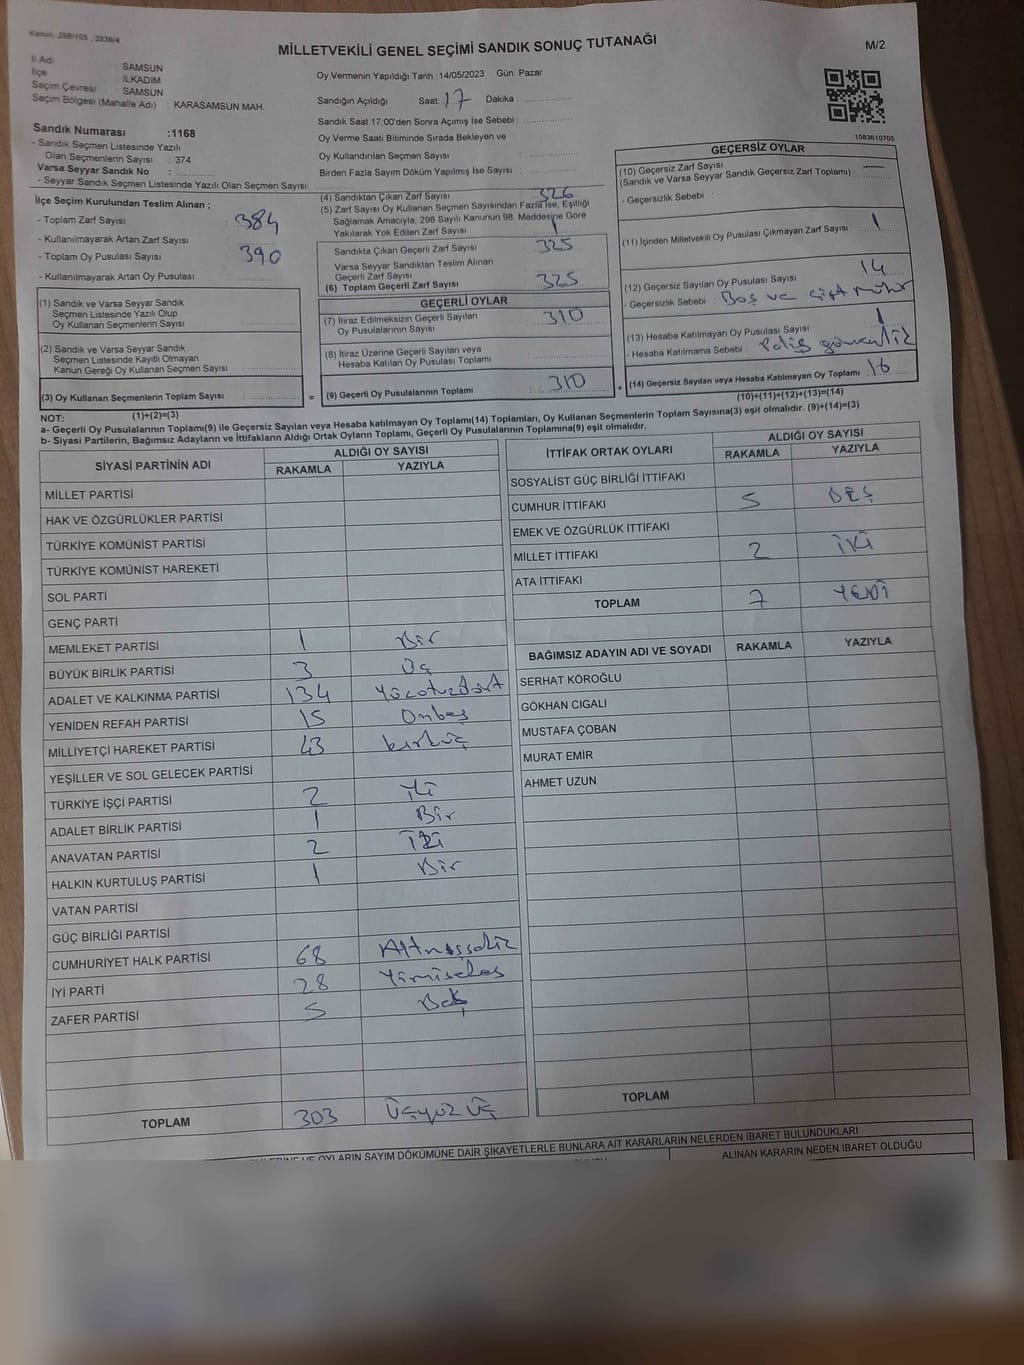 Kanun: 298/105 , 2839/4
MİLLETVEKİLİ GENEL SEÇİMİ SANDIK SONUÇ TUTANAĞI
M/2
İl Adı : SAMSUN
İlçe : İLKADIM
Seçim Çevresi : SAMSUN
Seçim Bölgesi (Mahalle Adı) : KARASAMSUN MAH.
Sandık Numarası :1168
- Sandık Seçmen Listesinde Yazılı
Olan Seçmenlerin Sayısı : 374
Varsa Seyyar Sandık No :
- Seyyar Sandık Seçmen Listesinde Yazılı Olan Seçmen Sayısı:
Oy Vermenin Yapıldığı Tarih :14/05/2023 Gün: Pazar
Sandığın Açıldığı Saat: 17 Dakika :
Sandık Saat 17:00'den Sonra Açımış İse Sebebi :
Oy Verme Saati Bitiminde Sırada Bekleyen ve
Oy Kullandırılan Seçmen Sayısı
Birden Fazla Sayım Döküm Yapılmış İse Sayısı :
1083610705
İlçe Seçim Kurulundan Teslim Alınan ;
- Toplam Zarf Sayısı : 384
- Kullanılmayarak Artan Zarf Sayısı
- Toplam Oy Pusulası Sayısı : 390
- Kullanılmayarak Artan Oy Pusulası
(1) Sandık ve Varsa Seyyar Sandık
Seçmen Listesinde Yazılı Olup
Oy Kullanan Seçmenlerin Sayısı :
(2) Sandık ve Varsa Seyyar Sandık
Seçmen Listesinde Kayıtlı Olmayan
Kanun Gereği Oy Kullanan Seçmen Sayısı :
(3) Oy Kullanan Seçmenlerin Toplam Sayısı :
(1)+(2)=(3)
(4) Sandıktan Çıkan Zarf Sayısı 326
(5) Zarf Sayısı Oy Kullanan Seçmen Sayısından Fazla İse, Eşitliği
Sağlamak Amacıyla, 298 Sayılı Kanunun 98. Maddesine Göre
Yakılarak Yok Edilen Zarf Sayısı 1
Sandıkta Çıkan Geçerli Zarf Sayısı : 325
Varsa Seyyar Sandıktan Teslim Alınan
Geçerli Zarf Sayısı
(6) Toplam Geçerli Zarf Sayısı : 325
GEÇERLİ OYLAR
(7) İtiraz Edilmeksizin Geçerli Sayılan
Oy Pusulalarının Sayısı : 310
(8) İtiraz Üzerine Geçerli Sayılan veya
Hesaba Katılan Oy Pusulası Toplamı
= (9) Geçerli Oy Pusulalarının Toplamı : 310 +
GEÇERSİZ OYLAR
(10) Geçersiz Zarf Sayısı —
(Sandık ve Varsa Seyyar Sandık Geçersiz Zarf Toplamı)
- Geçersizlik Sebebi :
(11) İçinden Milletvekili Oy Pusulası Çıkmayan Zarf Sayısı : 1
(12) Geçersiz Sayılan Oy Pusulası Sayısı 14
- Geçersizlik Sebebi : Boş ve çift mühür
(13) Hesaba Katılmayan Oy Pusulası Sayısı 1
- Hesaba Katılmama Sebebi :
(14) Geçersiz Sayılan veya Hesaba Katılmayan Oy Toplamı 16
(10)+(11)+(12)+(13)=(14)
NOT:
a- Geçerli Oy Pusulalarının Toplamı(9) ile Geçersiz Sayılan veya Hesaba katılmayan Oy Toplamı(14) Toplamları, Oy Kullanan Seçmenlerin Toplam Sayısına(3) eşit olmalıdır. (9)+(14)=(3)
b- Siyasi Partilerin, Bağımsız Adayların ve İttifakların Aldığı Ortak Oyların Toplamı, Geçerli Oy Pusulalarının Toplamına(9) eşit olmalıdır.
SİYASİ PARTİNİN ADI ALDIĞI OY SAYISI
RAKAMLA YAZIYLA
MİLLET PARTİSİ
HAK VE ÖZGÜRLÜKLER PARTİSİ
TÜRKİYE KOMÜNİST PARTİSİ
TÜRKİYE KOMÜNİST HAREKETİ
SOL PARTİ
GENÇ PARTİ
MEMLEKET PARTİSİ 1 Bir
BÜYÜK BİRLİK PARTİSİ 3 Üç
ADALET VE KALKINMA PARTİSİ 134 Yüzotuzdört
YENİDEN REFAH PARTİSİ 15 Onbeş
MİLLİYETÇİ HAREKET PARTİSİ 43 kırküç
YEŞİLLER VE SOL GELECEK PARTİSİ
TÜRKİYE İŞÇİ PARTİSİ 2 İki
ADALET BİRLİK PARTİSİ 1 Bir
ANAVATAN PARTİSİ 2 İki
HALKIN KURTULUŞ PARTİSİ 1 Bir
VATAN PARTİSİ
GÜÇ BİRLİĞİ PARTİSİ
CUMHURİYET HALK PARTİSİ 68 Altmışsekiz
İYİ PARTİ 28 Yirmisekiz
ZAFER PARTİSİ 5 Beş
TOPLAM 303 Üçyüz üç
İTTİFAK ORTAK OYLARI ALDIĞI OY SAYISI
RAKAMLA YAZIYLA
SOSYALİST GÜÇ BİRLİĞİ İTTİFAKI
CUMHUR İTTİFAKI 5 BEŞ
EMEK VE ÖZGÜRLÜK İTTİFAKI
MİLLET İTTİFAKI 2 İKİ
ATA İTTİFAKI
TOPLAM 7 YEDİ
BAĞIMSIZ ADAYIN ADI VE SOYADI RAKAMLA YAZIYLA
SERHAT KÖROĞLU
GÖKHAN CIGALI
MUSTAFA ÇOBAN
MURAT EMİR
AHMET UZUN
TOPLAM
VE OYLARIN SAYIM DÖKÜMÜNE DAİR ŞİKAYETLERLE BUNLARA AİT KARARLARIN NELERDEN İBARET BULUNDUKLARI
ALINAN KARARIN NEDEN İBARET OLDUĞU